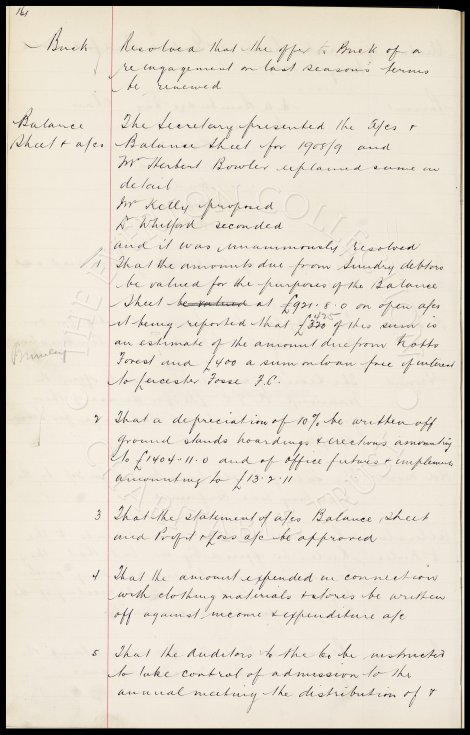 161
Buck Resolved that the offer to Buck of a
re engagement on last season's terms
be renewed
Balance The Secretary presented the a/cs &
Sheet & a/cs Balance Sheet for 1908/9 and
Mr Herbert Bowler explained same in
detail
Mr Kelly proposed
Dr Whitford seconded
and it was unanimously resolved
1 That the amounts due from Sundry debtors
be valued for the purposes of the Balance
Sheet be valued at £921.8.0 on open a/cs
425
it being reported that £320 of this sum is
an estimate of the amount due from Notts
Forest and £400 a sum on loan free of interest
to Leicester Fosse F.C.
2 That a depreciation of 10% be written off
ground stands hoardings & erections amounting
to £1404.11.0 and of office fixtures & implements
amounting to £13.2.11
3 That the statement of a/cs Balance Sheet
and Profit & Loss a/c be approved
4 That the amount expended in connection
with clothing materials & stores be written
off against income & expenditure a/c
5 That the Auditors to the Co be instructed
to take control of admission to the
annual meeting the distribution of &